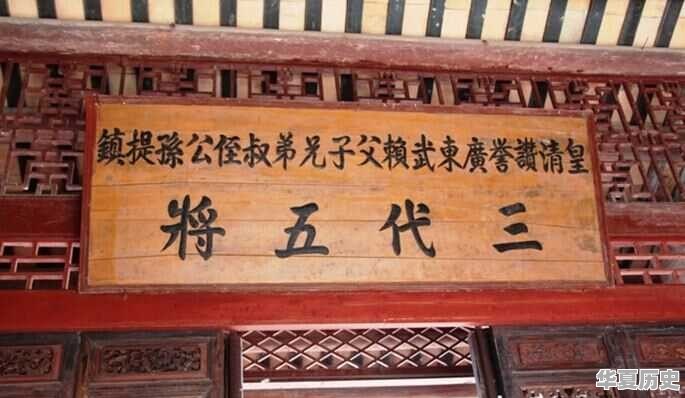 皇清讚譽廣東武賴父子兄弟叔侄公孫提鎮
三代五將
华夏历史